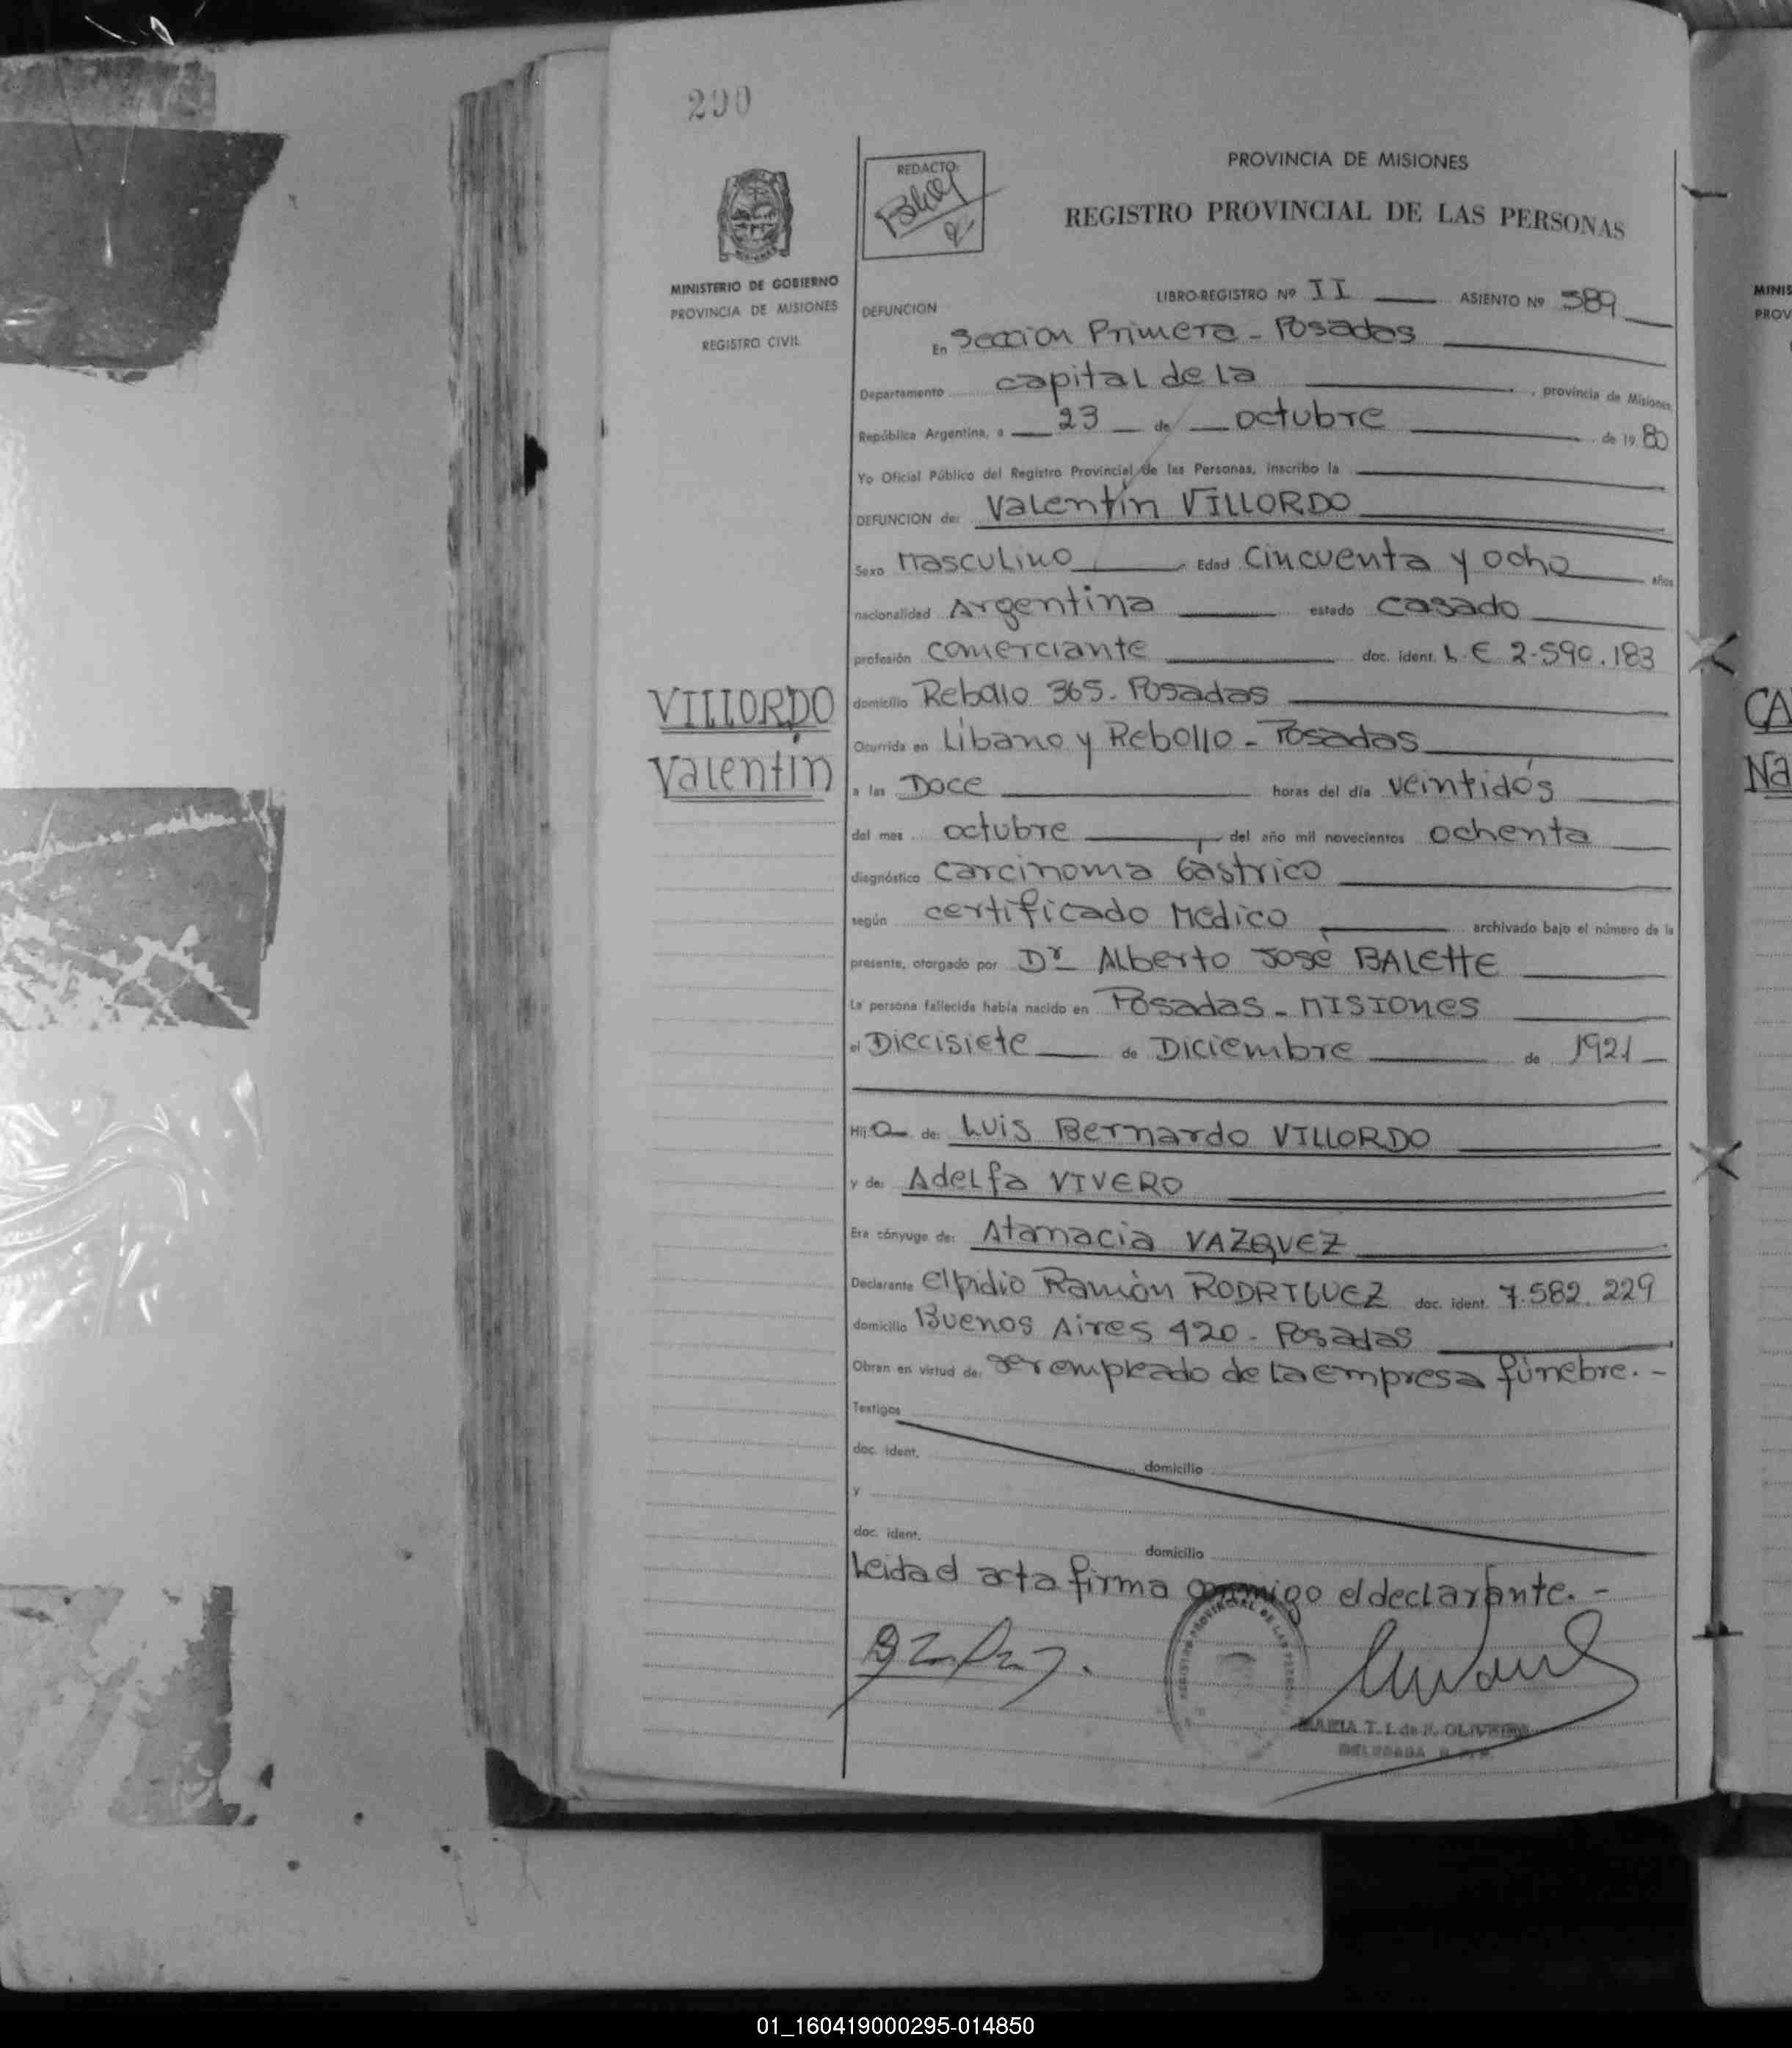 200
PROVINCIA DE MISIONES
REGISTRO PROVINCIAL DE LAS PERSONAS
REDACTO:
MINISTERIO DE GOBIERNO
PROVINCIA DE MISIONES
REGISTRO CIVIL
DEFUNCION LIBRO-REGISTRO Nº II ASIENTO Nº 589
En Seccion Primera - Posadas
Departamento capital de la, provincia de Misiones,
República Argentina, a 23 de octubre de 19 80
Yo Oficial Público del Registro Provincial de las Personas, inscribo la
DEFUNCION de: Valentín VILLORDO
Sexo Masculino Edad Cincuenta y ocho años
nacionalidad Argentina estado casado
profesión comerciante doc. ident. L.E 2.590.183
VILLORDO
Valentín
domicilio Rebollo 365. Posadas
Ocurrida en Líbano y Rebollo - Posadas
a las Doce horas del día veintidós
del mes octubre, del año mil novecientos ochenta
diagnóstico carcinoma Gástrico
según certificado Médico archivado bajo el número de la
presente, otorgado por Dr Alberto José BALETTE
La persona fallecida había nacido en Posadas - MISIONES
el Diecisiete de Diciembre de 1921
Hijo de: Luis Bernardo VILLORDO
y de: Adelfa VIVERO
Era cónyuge de: Atanacia VAZQUEZ
Declarante Elpidio Ramón RODRIGUEZ doc. ident. 7.582.229
domicilio Buenos Aires 420 - Posadas
Obran en virtud de: ser empleado de la empresa fúnebre. -
Testigos
doc. ident. domicilio
y
doc. ident. domicilio
Leida el acta firma conmigo el declarante. -
REGISTRO PROVINCIAL DE LAS PERSONAS
MARIA T. I. de F. OLIVEIRA
DELEGADA
MINIS
PROV
CA
Na
01_160419000295-014850